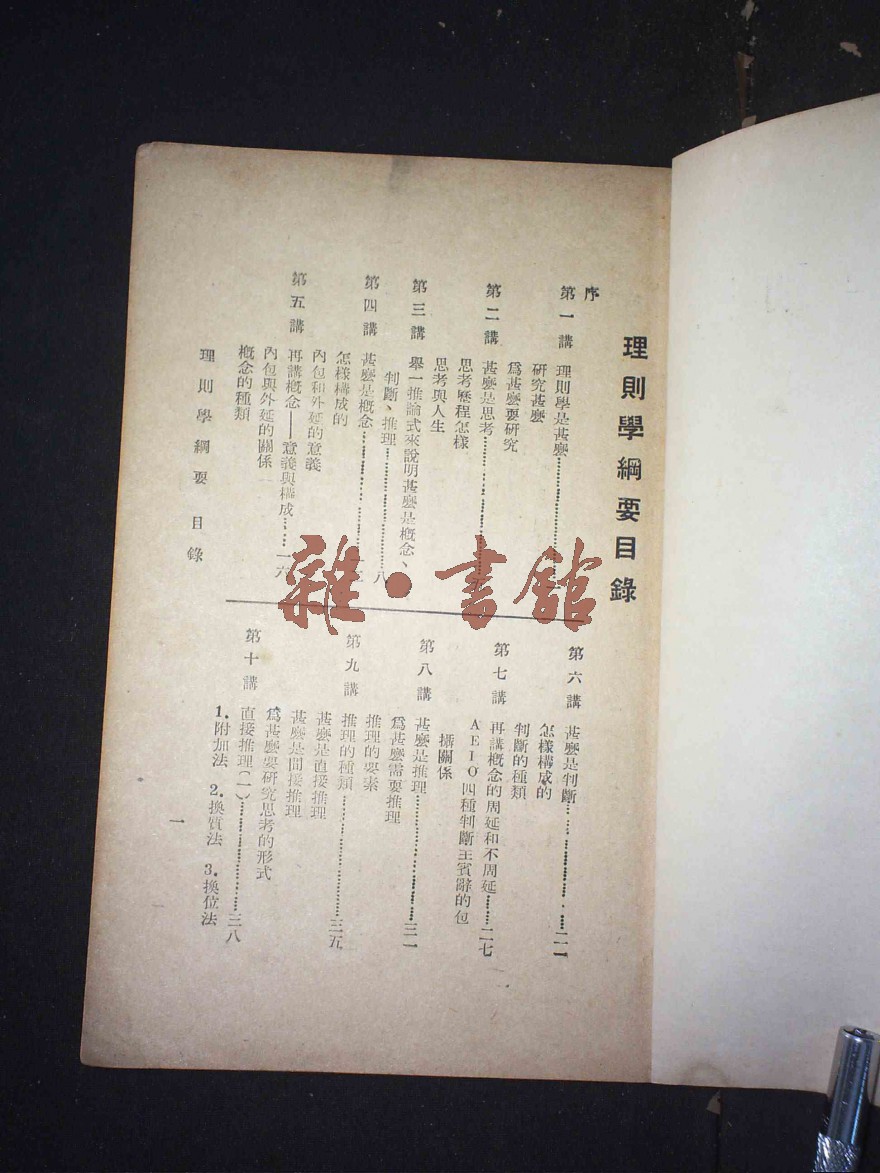 理則學綱要目錄
序
第一講 理則學是甚麼
研究甚麼
爲甚麼要研究
第二講 甚麼是思考
思考歷程怎樣
思考與人生
第三講 舉一推論式來說明甚麼是概念、
判斷、推理……八
第四講 甚麼是概念
怎樣構成的
內包和外延的意義
第五講 再講概念——意義與構成……一六
內包與外延的關係
概念的種類
第六講 甚麼是判斷……二一
怎樣構成的
判斷的種類
第七講 再講概念的周延和不周延……二七
AEIO四種判斷主賓辭的包
攝關係
第八講 甚麼是推理……三一
爲甚麼需要推理
推理的要素
第九講 推理的種類……三五
甚麼是直接推理
甚麼是間接推理
爲甚麼要研究思考的形式
第十講 直接推理(一)……三八
1.附加法 2.換質法 3.換位法
理則學綱要 目錄
一
雜·書館